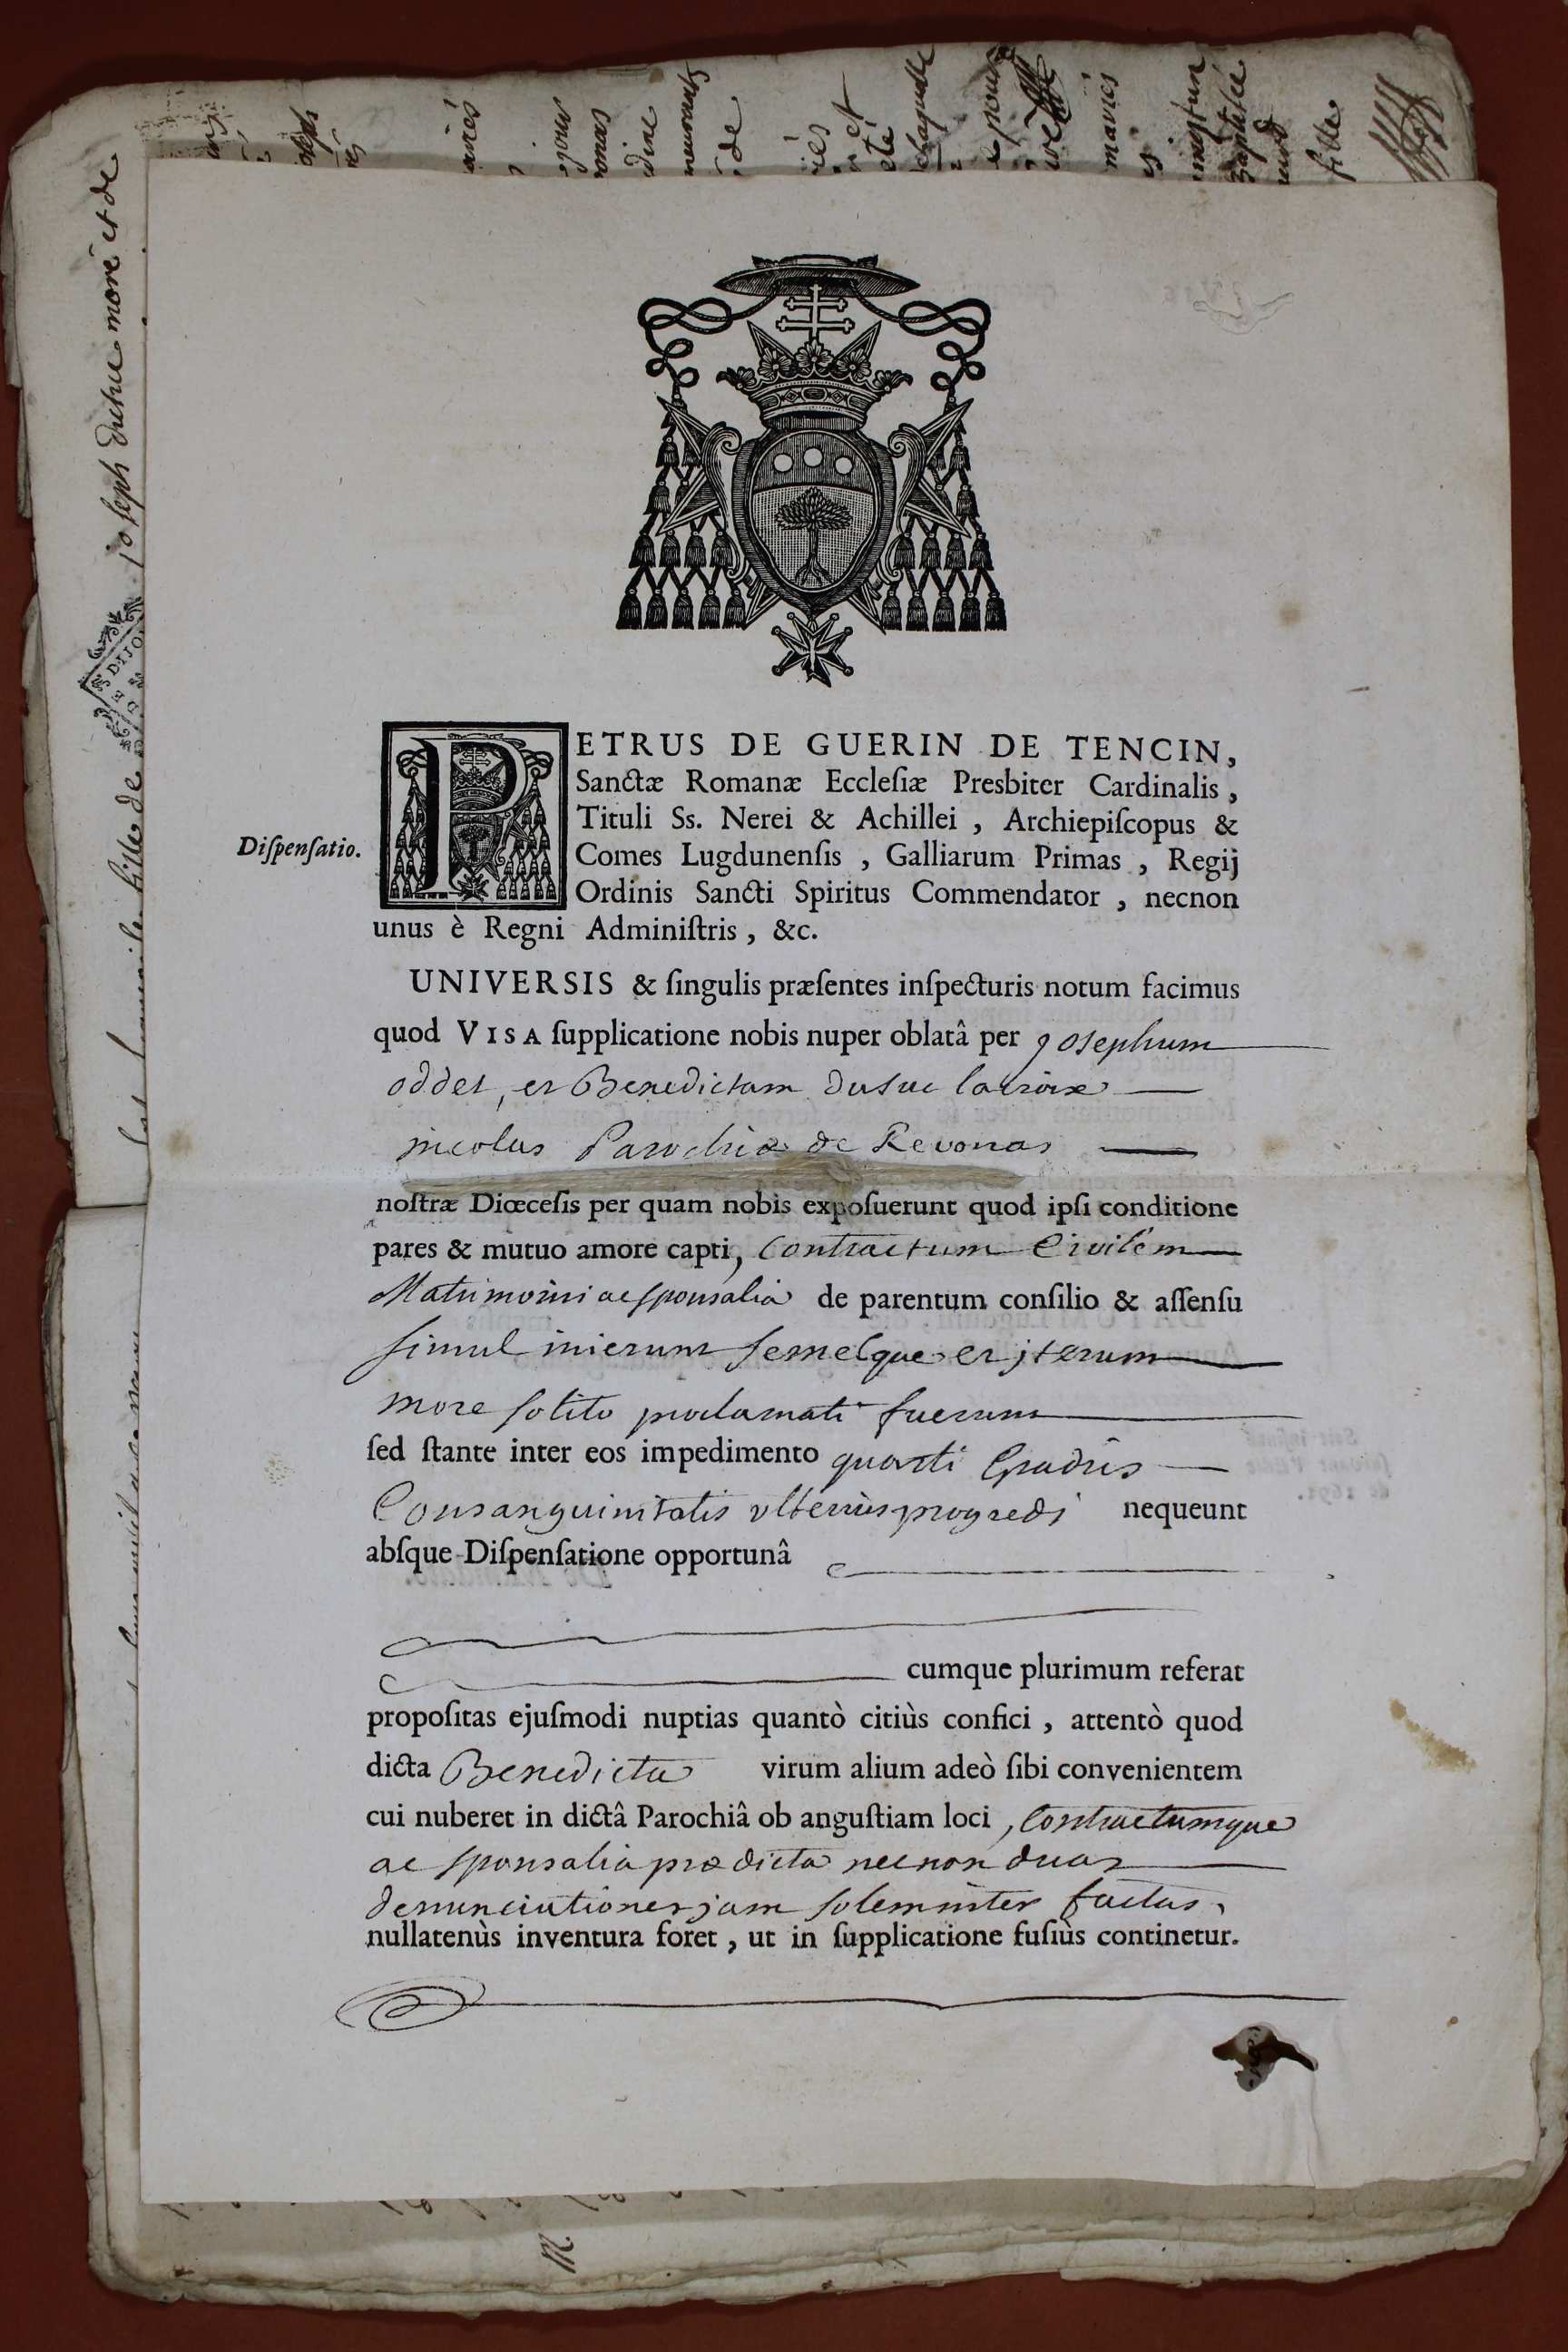 joseph duhuc moré et de
fille de
fille
mariés
DIJO
Diſpenſatio.
PETRUS DE GUERIN DE TENCIN,
Sanctæ Romanæ Eccleſiæ Presbiter Cardinalis,
Tituli Ss. Nerei & Achillei, Archiepiſcopus &
Comes Lugdunenſis, Galliarum Primas, Regij
Ordinis Sancti Spiritus Commendator, necnon
unus è Regni Adminiſtris, &c.
UNIVERSIS & ſingulis præſentes inſpecturis notum facimus
quod VISA ſupplicatione nobis nuper oblatâ per Josephum
oddet, et Benedictam dusuc lacroix
incolas Parochiæ de Revonas
noſtræ Diœceſis per quam nobis expoſuerunt quod ipſi conditione
pares & mutuo amore capti, Contractum Civilem
Matrimonii ac sponsalia de parentum conſilio & aſſenſu
ſimul inierunt ſemelque et iterum
more ſolito proclamati fuerunt
ſed ſtante inter eos impedimento quarti Gradus
Consanguinitatis ulterius progredi nequeunt
abſque Diſpenſatione opportunâ
cumque plurimum referat
propoſitas ejuſmodi nuptias quantò citiùs confici, attentò quod
dicta Benedicta virum alium adeò ſibi convenientem
cui nuberet in dictâ Parochiâ ob anguſtiam loci, Contractumque
ac sponsalia prædicta necnon duas
denunciationes jam ſolemniter factas,
nullatenùs inventura foret, ut in ſupplicatione fuſiùs continetur.